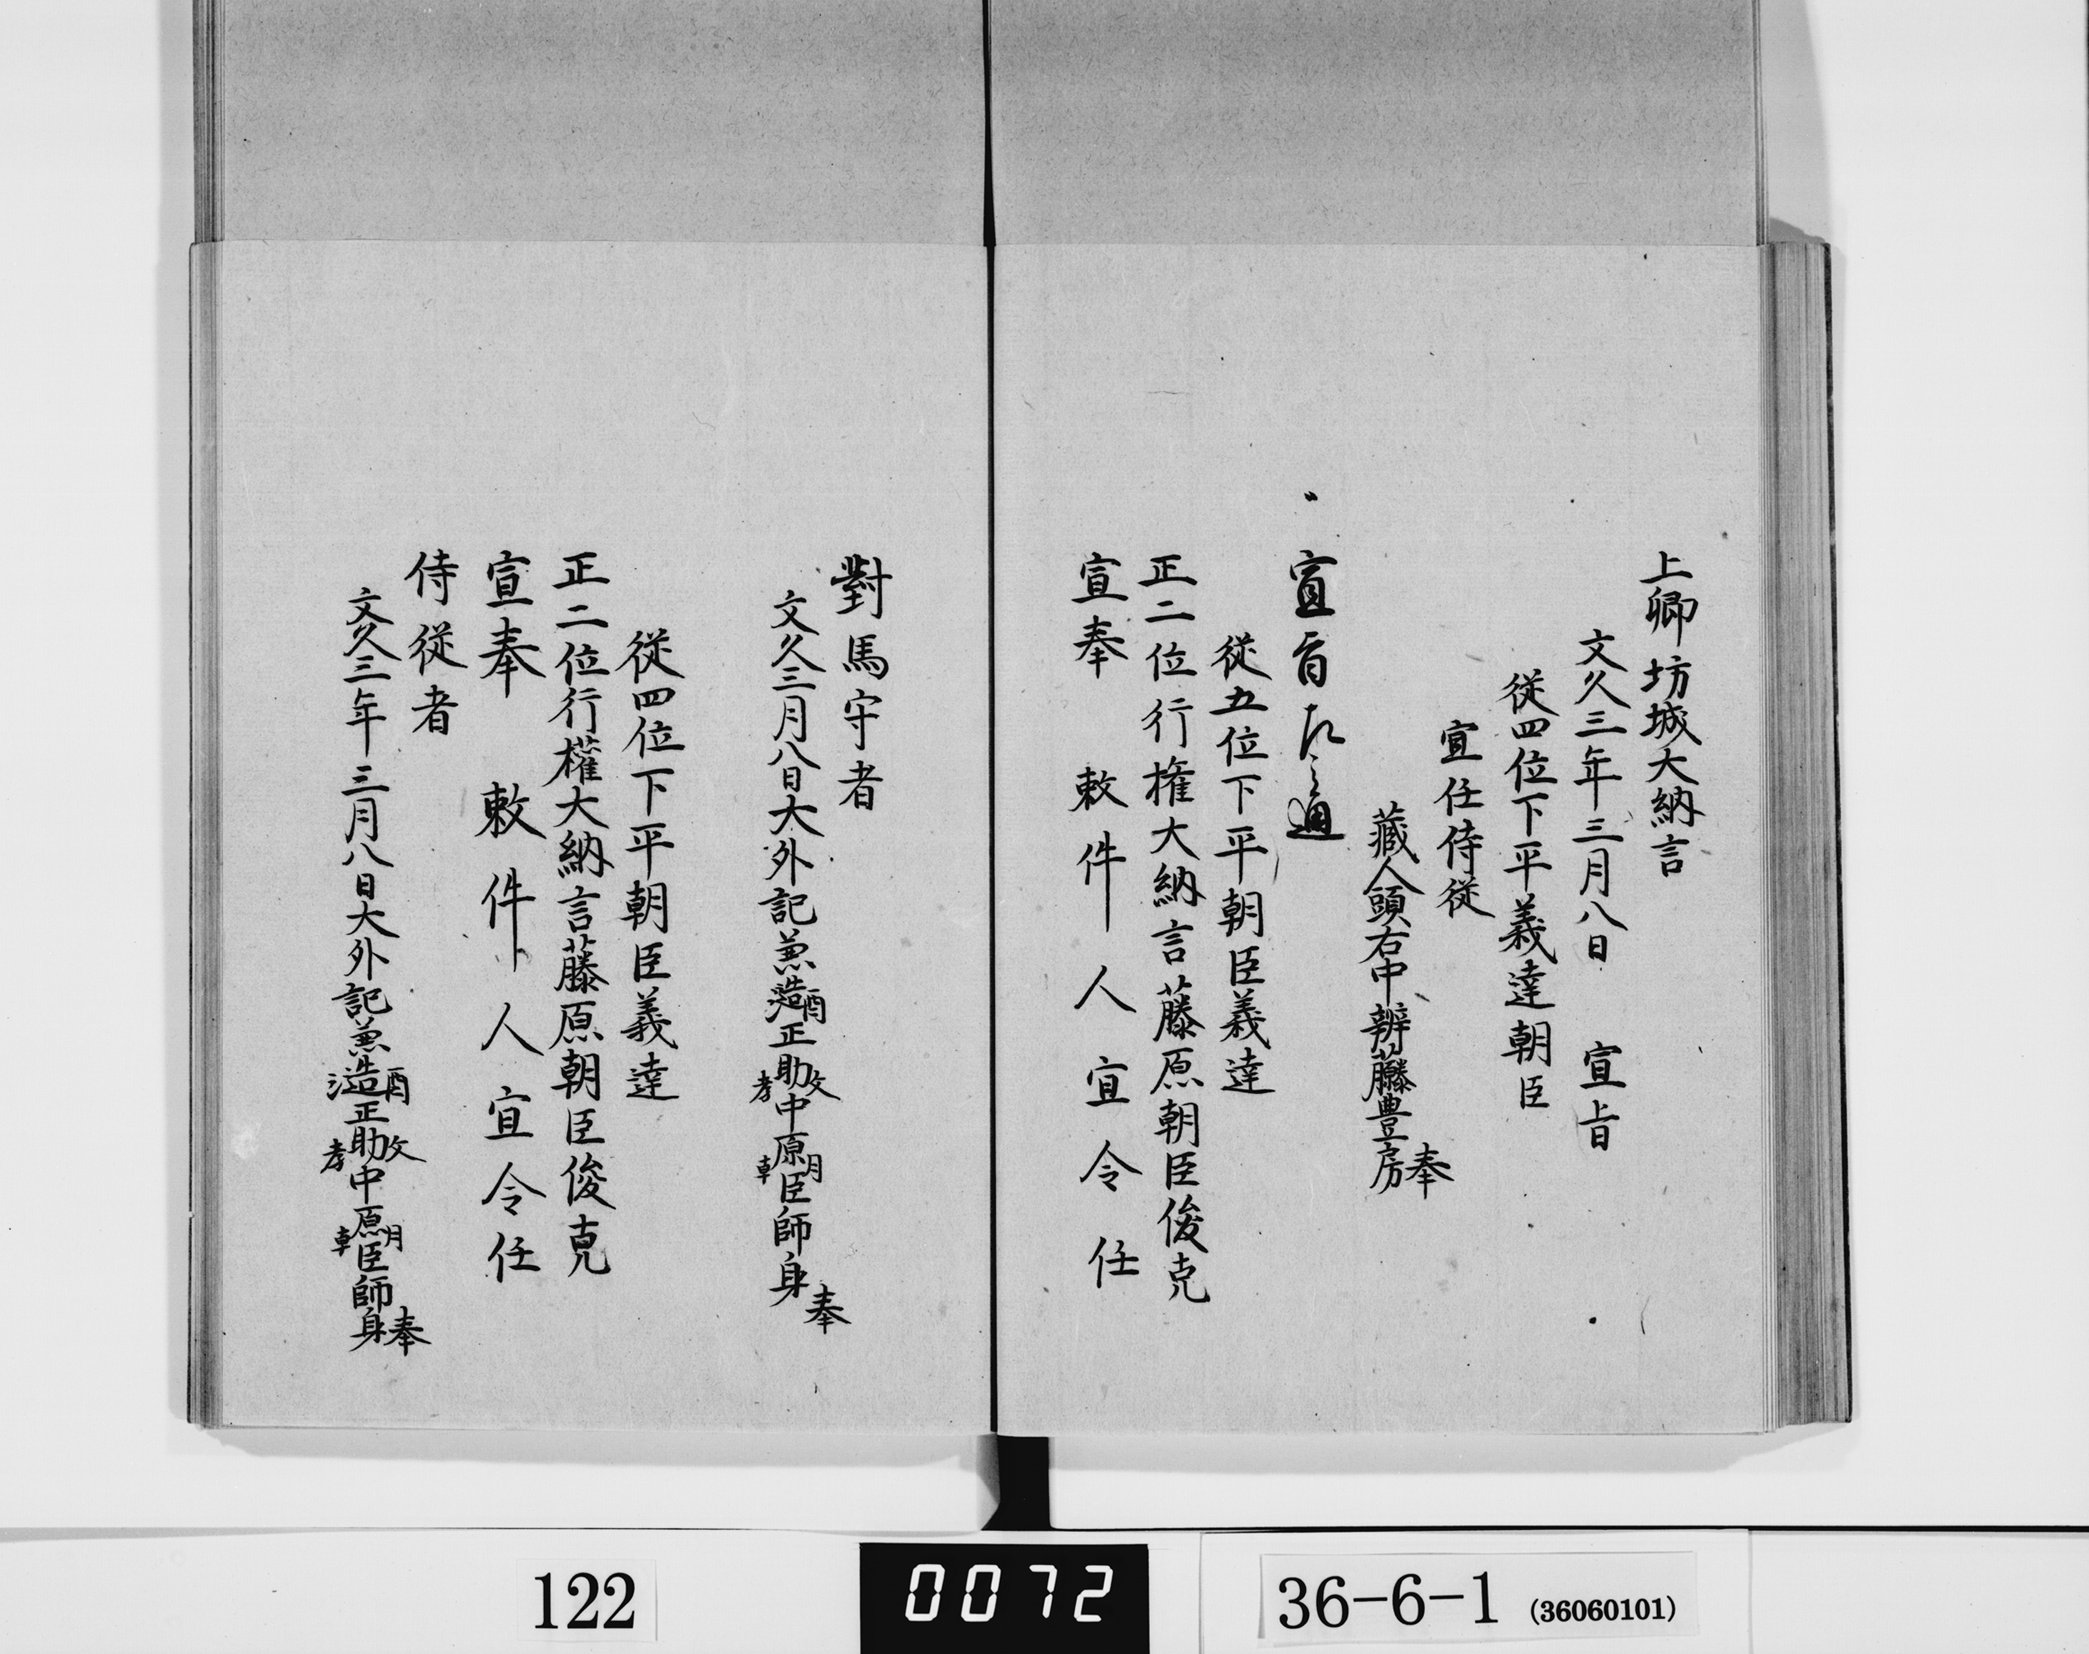 上卿坊城大納言
文久三年三月八日　宣旨
従四位下平義達朝臣
宣任侍従
藏人頭右中辨藤豊房奉
宣旨左之通
従五位下平朝臣義達
正二位行権大納言藤原朝臣俊克
宣奉　敕件人宣令任
對馬守者
文久三月八日大外記兼造酒正助教中原朝臣師身奉
従四位下平朝臣義達
正二位行權大納言藤原朝臣俊克
宣奉　敕件人宣令任
侍従者
文久三年三月八日大外記兼造酒正助教中原朝臣師身奉
122
0072
36-6-1 (36060101)